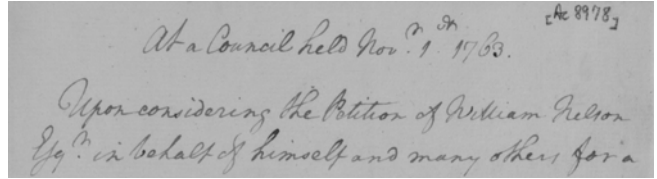 [Ac 8978]
At a Council held Nov.r 1st 1763.
Upon considering the Petition of William Nelson
Esqr. in behalf of himself and many others for a